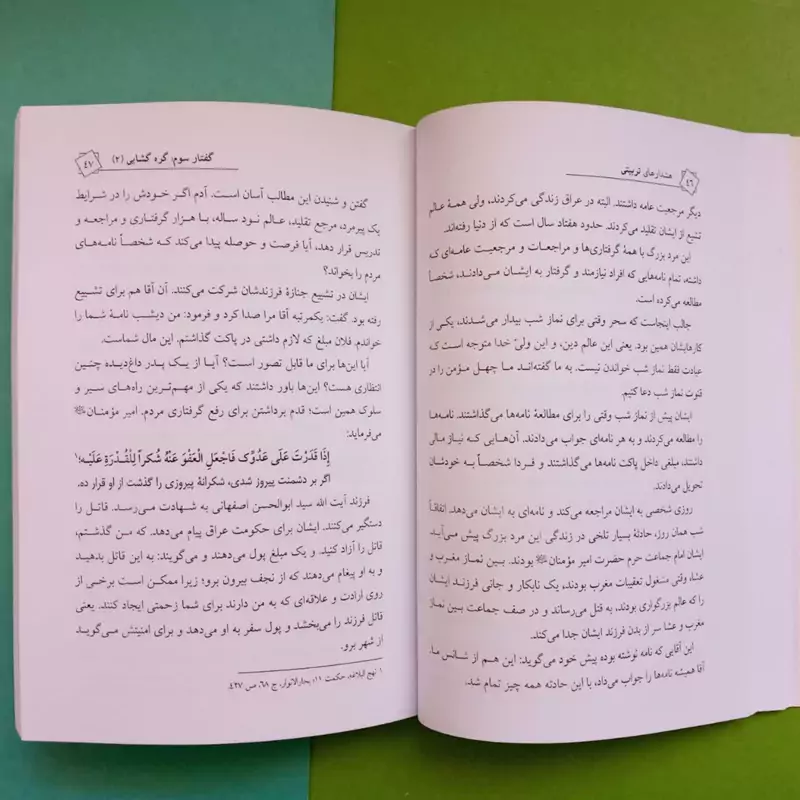 ۴۶
هشدارهای تربیتی
دیگر مرجعیت عامه داشتند. البته در عراق زندگی می‌کردند، ولی همهٔ عالم
تشیع از ایشان تقلید می‌کردند. حدود هفتاد سال است که از دنیا رفته‌اند.
این مرد بزرگ با همهٔ گرفتاری‌ها و مراجعات و مرجعیت عامه‌ای که
داشته، تمام نامه‌هایی که افراد نیازمند و گرفتار به ایشان می‌دادند، شخصاً
مطالعه می‌کرده است.
جالب اینجاست که سحر وقتی برای نماز شب بیدار می‌شدند، یکی از
کارهایشان همین بود. یعنی این عالم دین، و این ولیّ خدا متوجه است ک
عبادت فقط نماز شب خواندن نیست. به ما گفته‌اند ما چهل مؤمن را در
قنوت نماز شب دعا کنیم.
ایشان پیش از نماز شب وقتی را برای مطالعهٔ نامه‌ها می‌گذاشتند. نامه‌ها
را مطالعه می‌کردند و به هر نامه‌ای جواب می‌دادند. آن‌هایی که نیاز مالی
داشتند، مبلغی داخل پاکت نامه‌ها می‌گذاشتند و فردا شخصاً به خودشان
تحویل می‌دادند.
روزی شخصی به ایشان مراجعه می‌کند و نامه‌ای به ایشان می‌دهد. اتفاقاً
شب همان روز، حادثهٔ بسیار تلخی در زندگی این مرد بزرگ پیش می‌آید
ایشان امام جماعت حرم حضرت امیر مؤمنان بودند. بین نماز مغرب و
عشا، وقتی مشغول تعقیبات مغرب بودند، یک نابکار و جانی فرزند ایشان
را که عالم بزرگواری بودند، به قتل می‌رساند و در صف جماعت بین نماز
مغرب و عشا سر از بدن فرزند ایشان جدا می‌کند.
این آقایی که نامه نوشته بوده پیش خود می‌گوید: این هم از شانس ما.
آقا همیشه نامه‌ها را جواب می‌داد، با این حادثه همه چیز تمام شد.
گفتار سوم: گره گشایی (۲)
۴۷
گفتن و شنیدن این مطالب آسان است. آدم اگر خودش را در شرایط
یک پیرمرد، مرجع تقلید، عالم نود ساله، با هزار گرفتاری و مراجعه و
تدریس قرار دهد، آیا فرصت و حوصله پیدا می‌کند که شخصاً نامه‌های
مردم را بخواند؟
ایشان در تشییع جنازهٔ فرزندشان شرکت می‌کنند. آن آقا هم برای تشییع
رفته بود. گفت: یکمرتبه آقا مرا صدا کرد و فرمود: من دیشب نامهٔ شما را
خواندم. فلان مبلغ که لازم داشتی در پاکت گذاشتم. این مال شماست.
آیا این‌ها برای ما قابل تصور است؟ آیا از یک پدر داغ‌دیده چنین
انتظاری هست؟ این‌ها باور داشتند که یکی از مهم‌ترین راه‌های سیر و
سلوک همین است؛ قدم برداشتن برای رفع گرفتاری مردم. امیر مؤمنان
می‌فرماید:
إِذَا قَدَرْتَ عَلَى عَدُوِّكَ فَاجْعَلِ الْعَفْوَ عَنْهُ شُكْراً لِلْقُدْرَةِ عَلَيْهِ؛۱
اگر بر دشمنت پیروز شدی، شکرانهٔ پیروزی را گذشت از او قرار ده.
فرزند آیت الله سید ابوالحسن اصفهانی به شهادت می‌رسد. قاتل را
دستگیر می‌کنند. ایشان برای حکومت عراق پیام می‌دهد. که من گذشتم،
قاتل را آزاد کنید. و یک مبلغ پول می‌دهند و می‌گویند: به این قاتل بدهید
و به او پیغام می‌دهند که از نجف بیرون برو؛ زیرا ممکن است برخی از
روی ارادت و علاقه‌ای که به من دارند برای شما زحمتی ایجاد کنند. یعنی
قاتل فرزند را می‌بخشد و پول سفر به او می‌دهد و برای امنیتش می‌گوید
از شهر برو.
۱ نهج البلاغه، حکمت ۱۱؛ بحارالانوار، ج ۶۸، ص ۴۲۷.